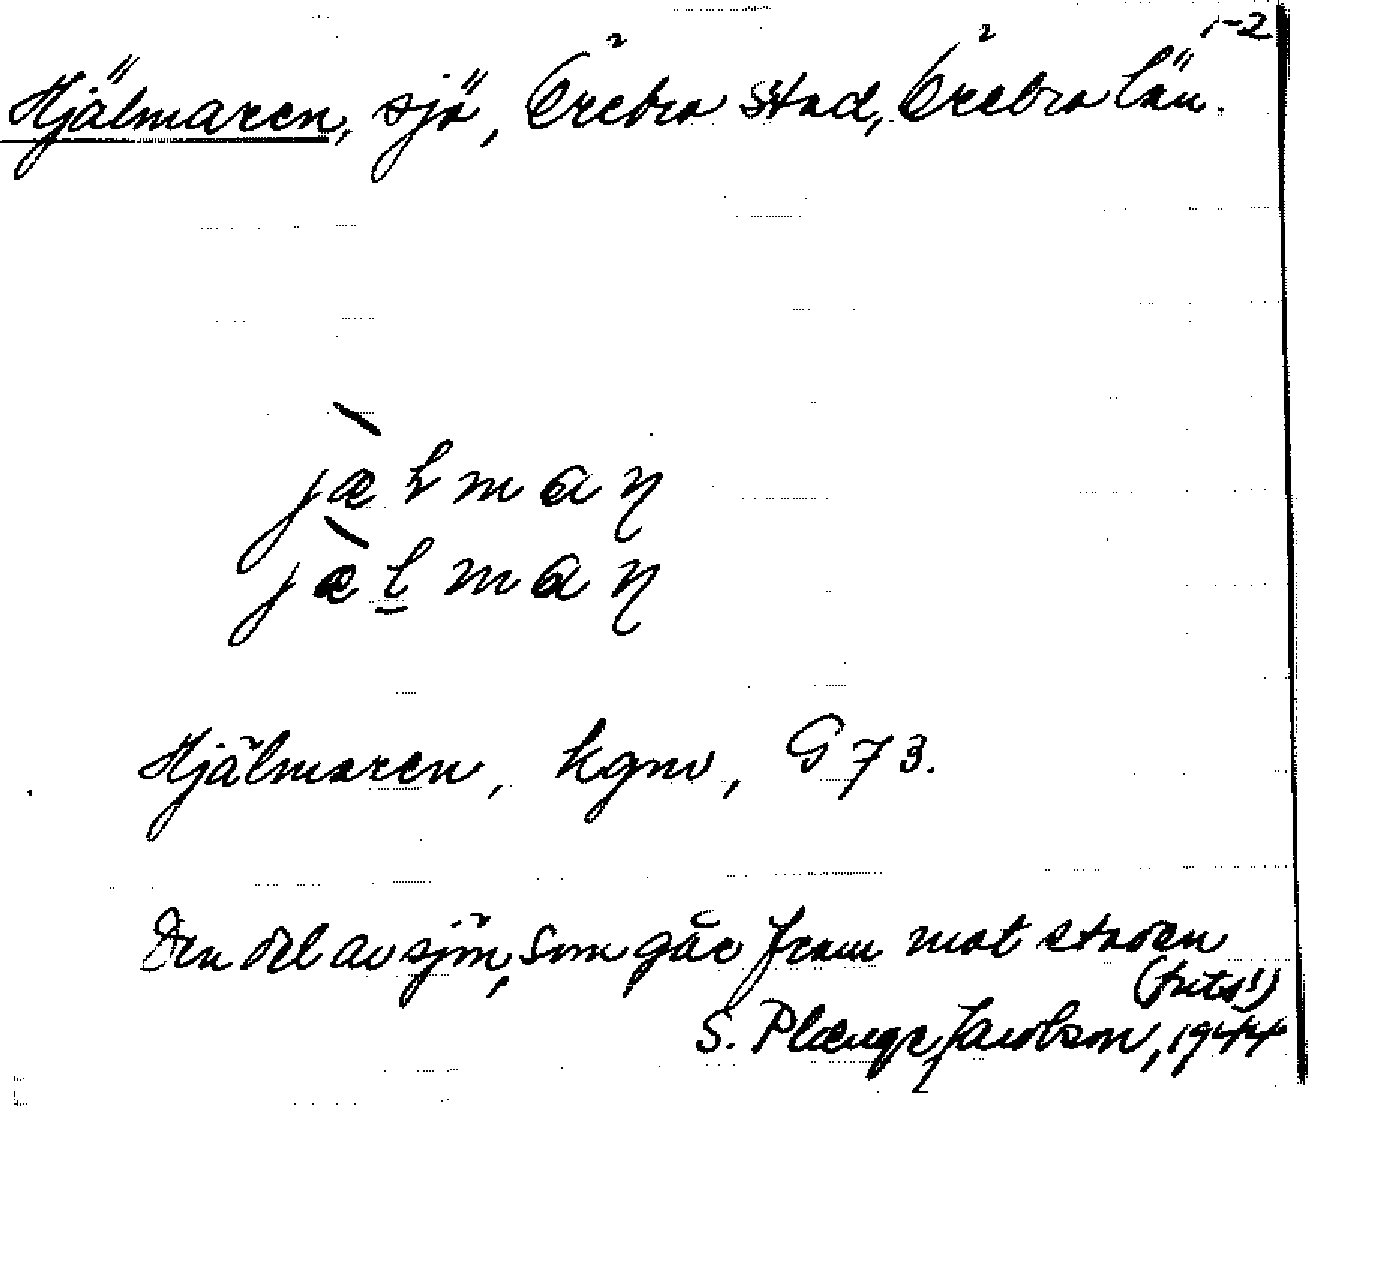 1-2
Hjälmaren, sjö, Örebro stad, Örebro län.
jælmaɳ
jæḻmaɳ
Hjälmaren, kgnv, G 73.
Den del av sjön, som går fram mot staden
(forts!)
S. Plænge Jacobson, 1944